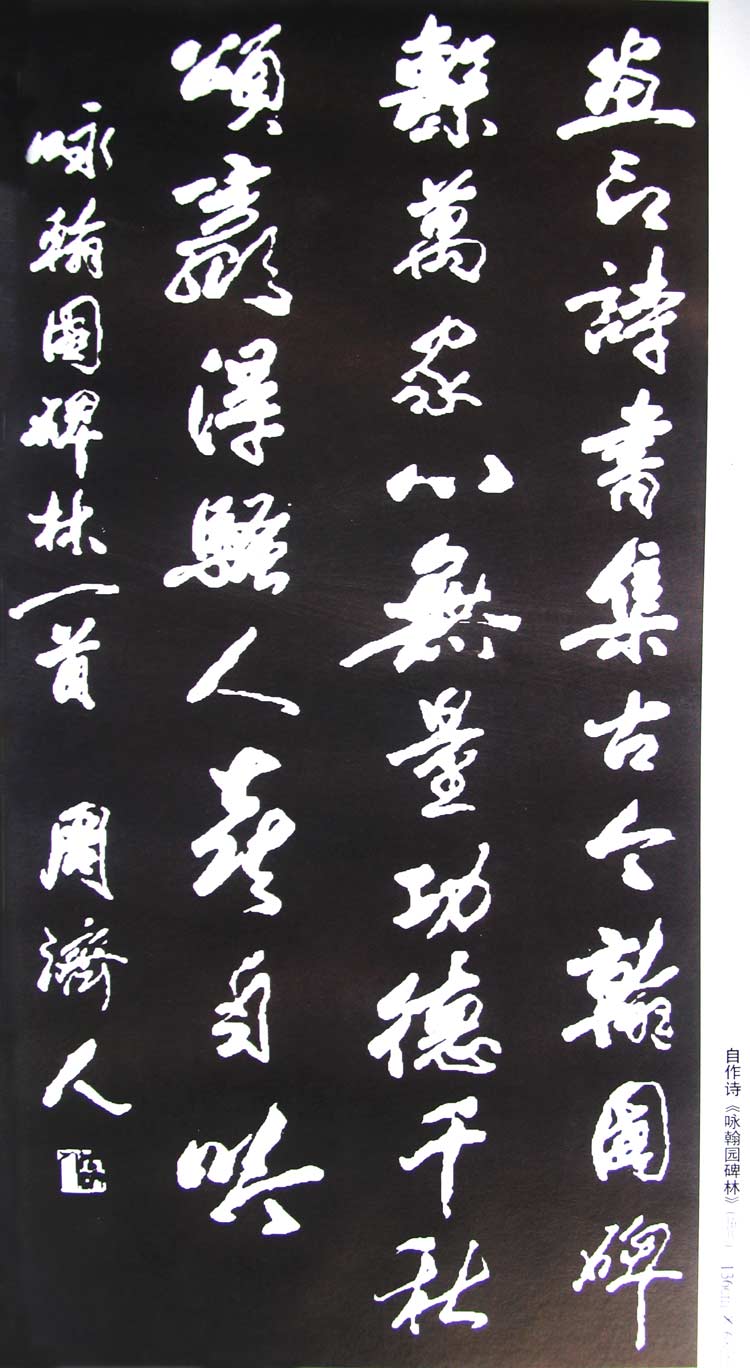 畫印詩書集古今翰園碑
繫萬家心無量功德千秋
頌贏得騷人喜自吟
咏翰園碑林一首 周濟人
自作诗《咏翰园碑林》 136cm×